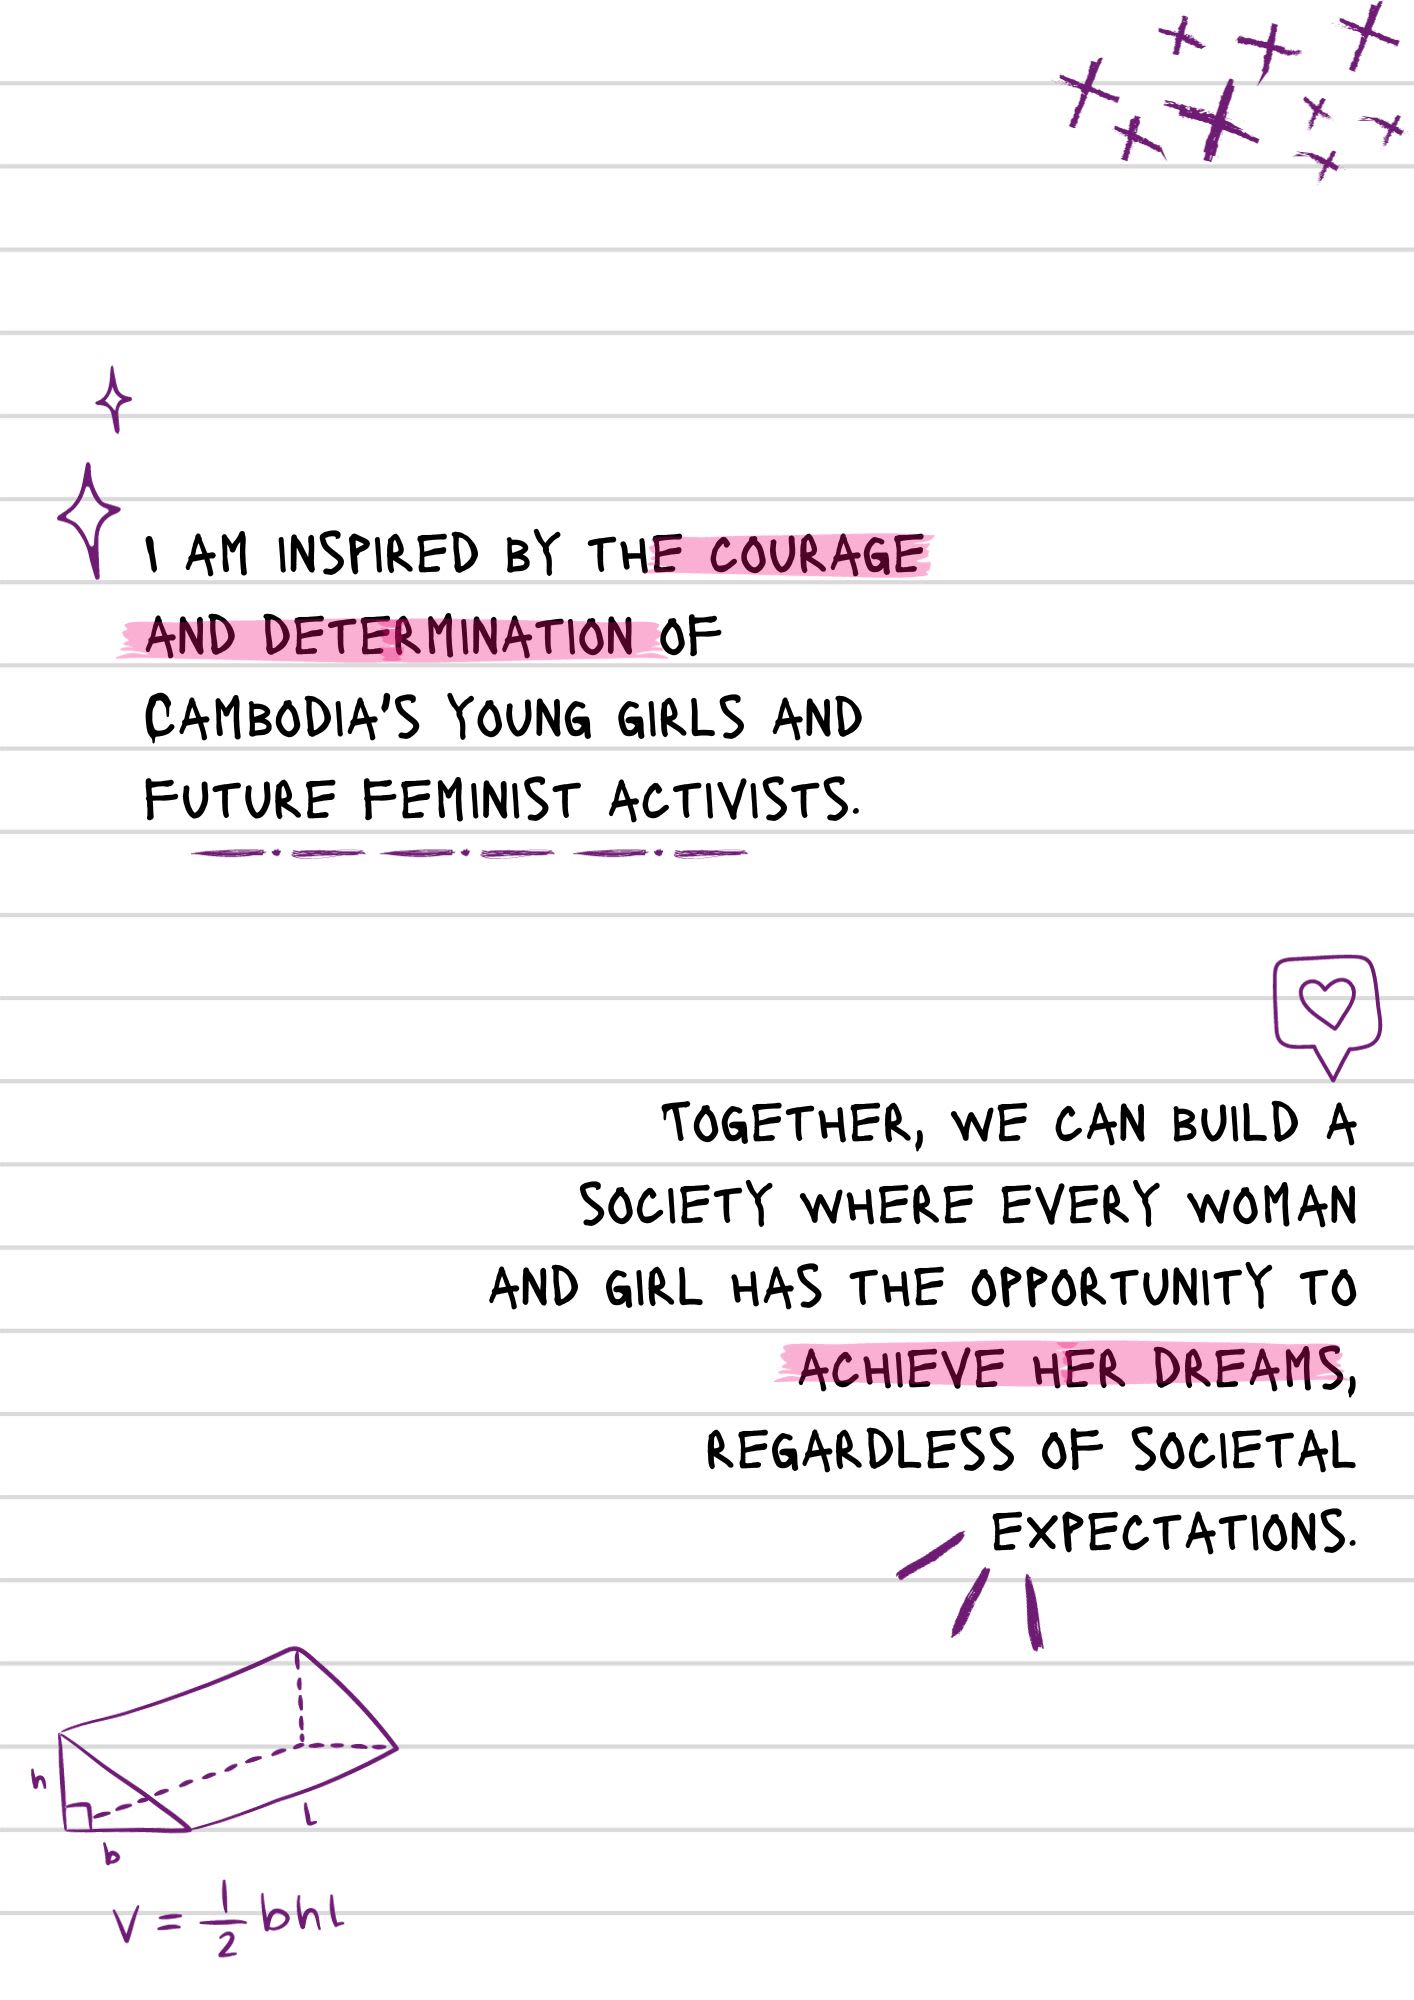 I AM INSPIRED BY THE COURAGE
AND DETERMINATION OF
CAMBODIA'S YOUNG GIRLS AND
FUTURE FEMINIST ACTIVISTS.
TOGETHER, WE CAN BUILD A
SOCIETY WHERE EVERY WOMAN
AND GIRL HAS THE OPPORTUNITY TO
ACHIEVE HER DREAMS,
REGARDLESS OF SOCIETAL
EXPECTATIONS.
h
L
b
V = 1/2 bhl